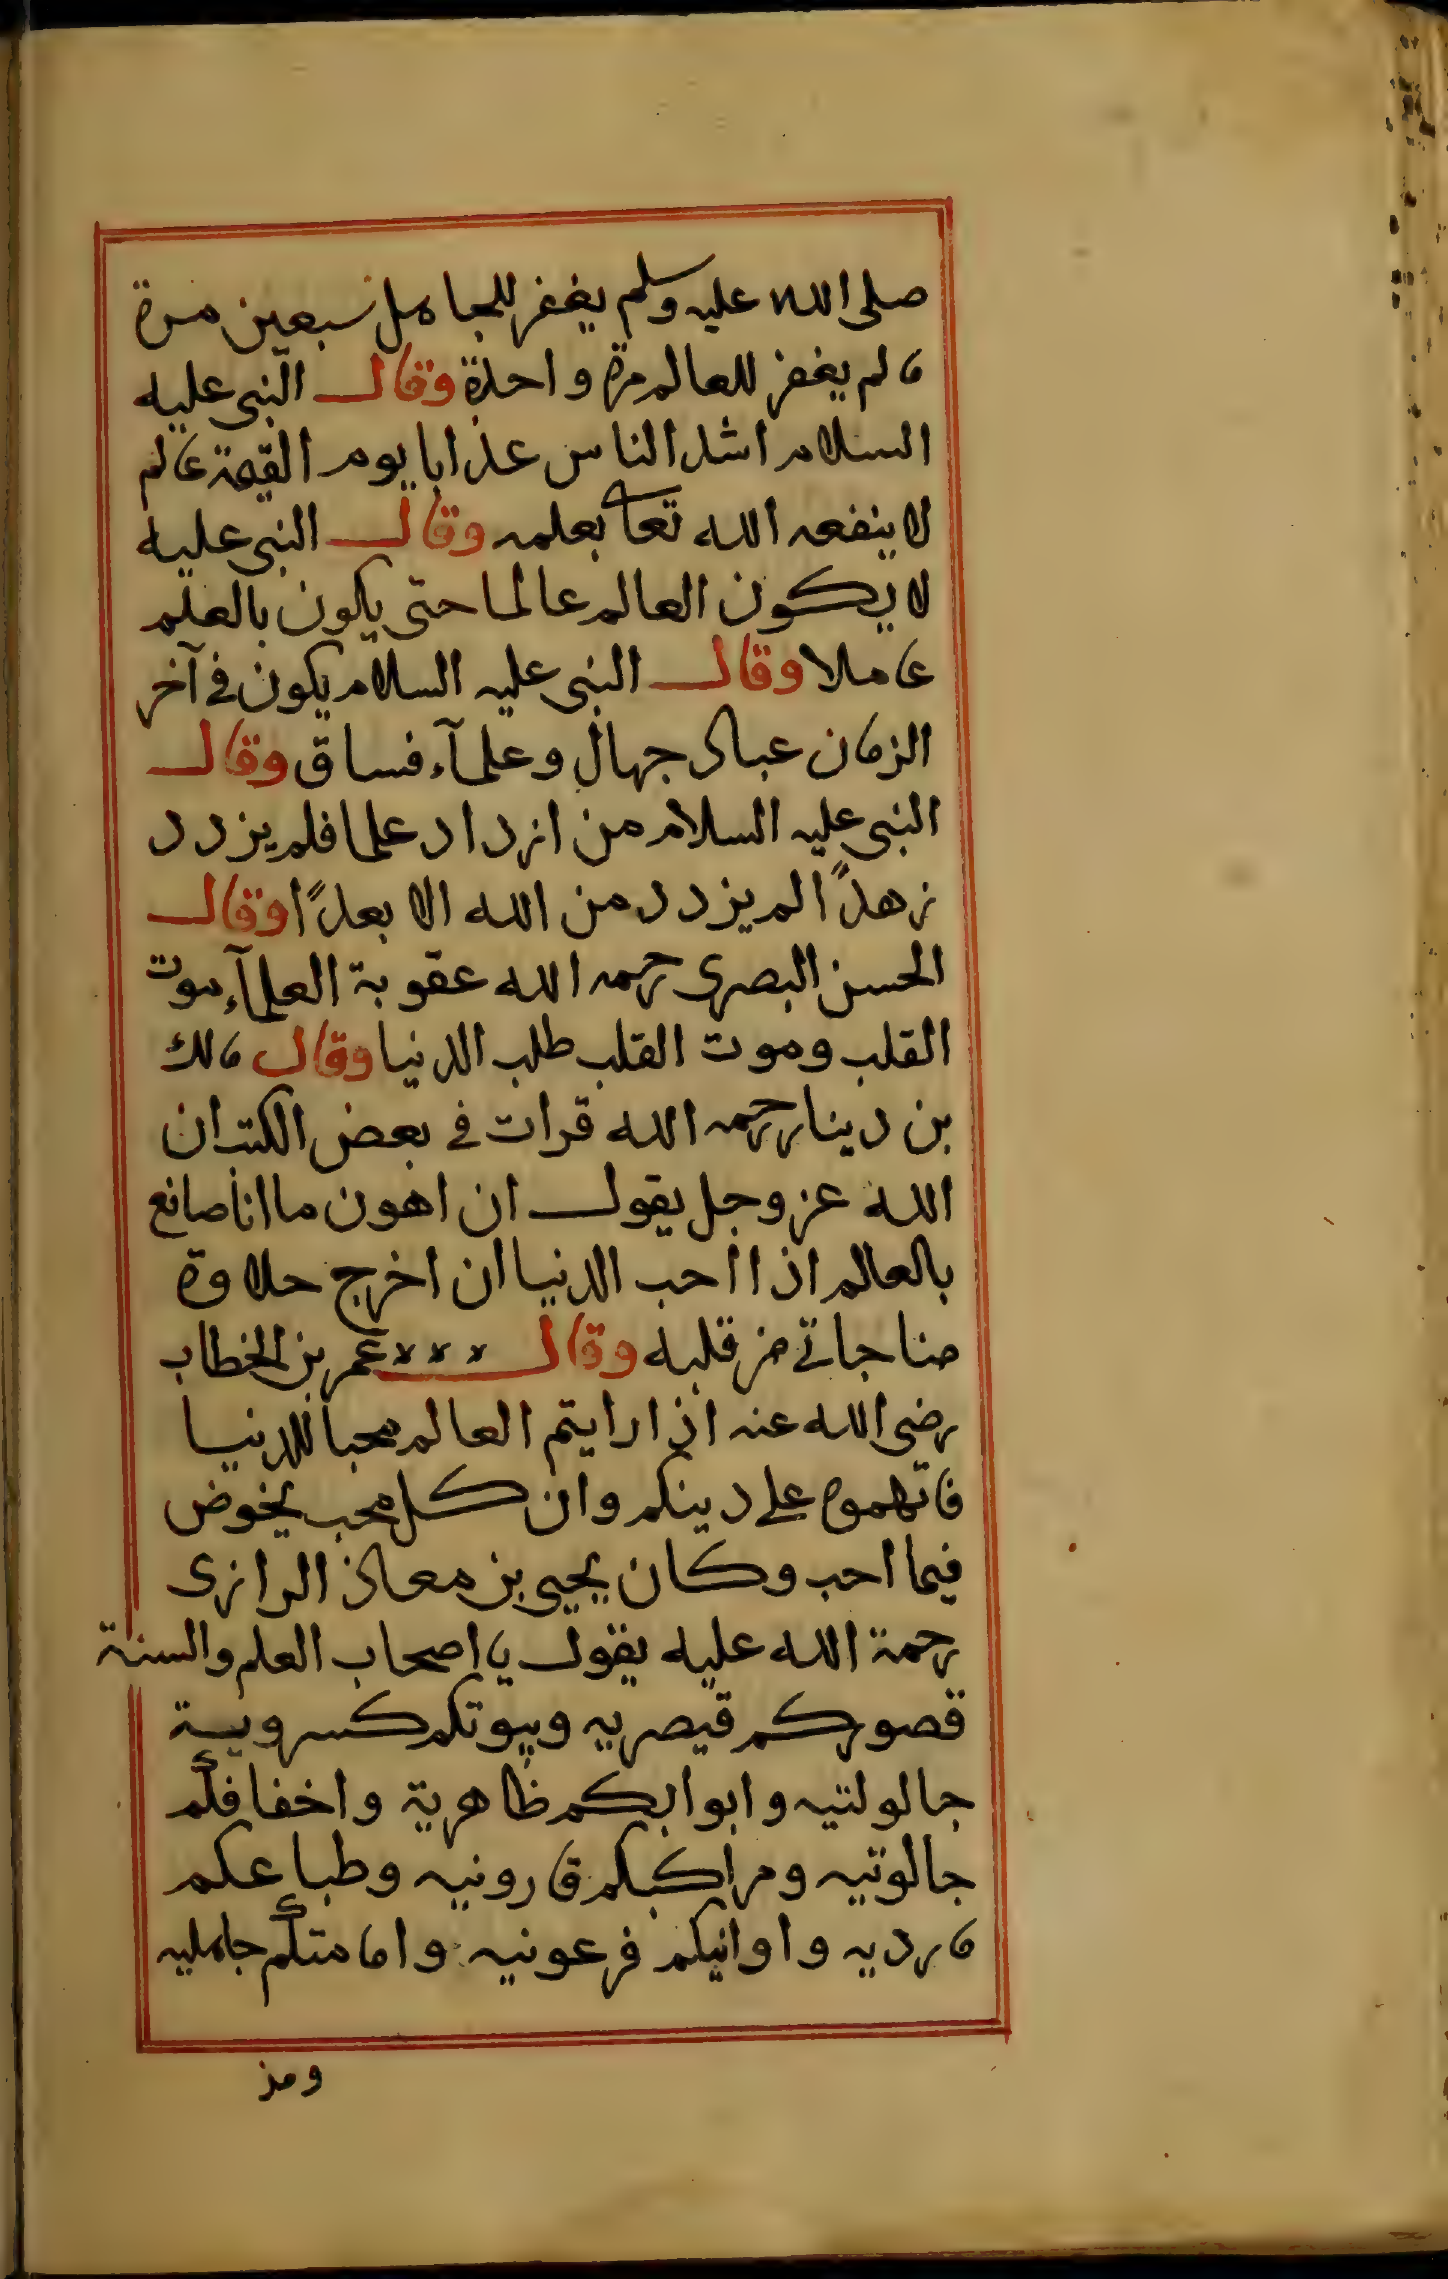 صلى الله عليه وسلم يغفر للجاهل سبعين مرة
مالم يغفر للعالم مرة واحدة وقال النبى عليه
السلام اشد الناس عذابا يوم القيمة عالم
لا ينفعه الله تعا بعلمه وقال النبى عليه
لا يكون العالم عالما حتى يكون بالعلم
عاملا وقال النبى عليه السلام يكون في آخر
الزمان عباد جهال وعلمآء فساق وقال
النبى عليه السلام من ازداد علما فلم يزدد
زهدًا لم يزدد من الله الا بعدًا وقال
الحسن البصرى رحمه الله عقوبة العلمآء موت
القلب وموت القلب طلب الدنيا وقال مالك
بن دينار رحمه الله قرات في بعض الكتب ان
الله عز وجل يقول ان اهون ما انا صانع
بالعالم اذا احب الدنيا ان اخرج حلاوة
مناجاتي من قلبه وقال عمر بن الخطاب
رضى الله عنه اذا رايتم العالم محبا للدنيا
فاتهموه على دينكم وان كل محب يخوض
فيما احب وكان يحيى بن معاذ الرازى
رحمة الله عليه يقول يا اصحاب العلم والسنة
قصوركم قيصريه وبيوتكم كسروية
جالولتيه وابوابكم ظاهرية واخفافكم
جالوتيه ومراكبكم قارونيه وطباعكم
ماردیه واوانيكم فرعونيه وامامتكم جاهليه
ومذ